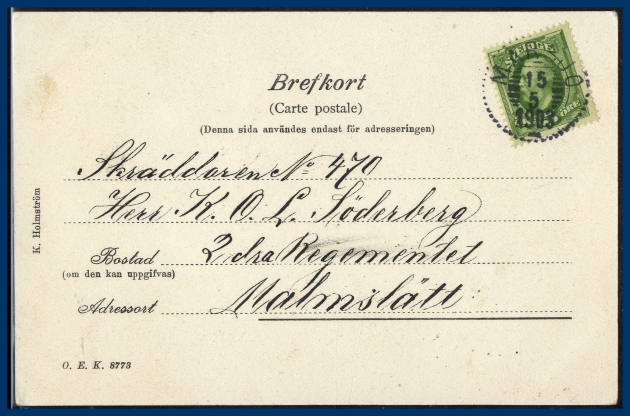 Brefkort
(Carte postale)
(Denna sida användes endast för adresseringen)
SVERIGE
15
5
1903
ÖRE
Skräddaren No 470
Herr K. O. L. Söderberg
Bostad 2dra Regementet
(om den kan uppgifvas)
Adressort Malmslätt
K. Holmström
O. E. K. 8773